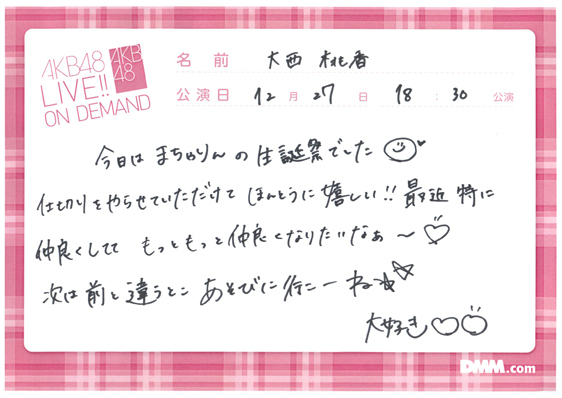 AKB48
LIVE!!
ON DEMAND
AKB
48
名前 大西 桃香
公演日 12月27日 18:30 公演
今日は まちゃりんの生誕祭でした
仕切りをやらせていただけて ほんとうに嬉しい!! 最近 特に
仲良くしてて もっともっと仲良くなりたいなぁ〜♡
次は前と違うとこ あそびに行こーね☆☆
大好き♡
DMM.com